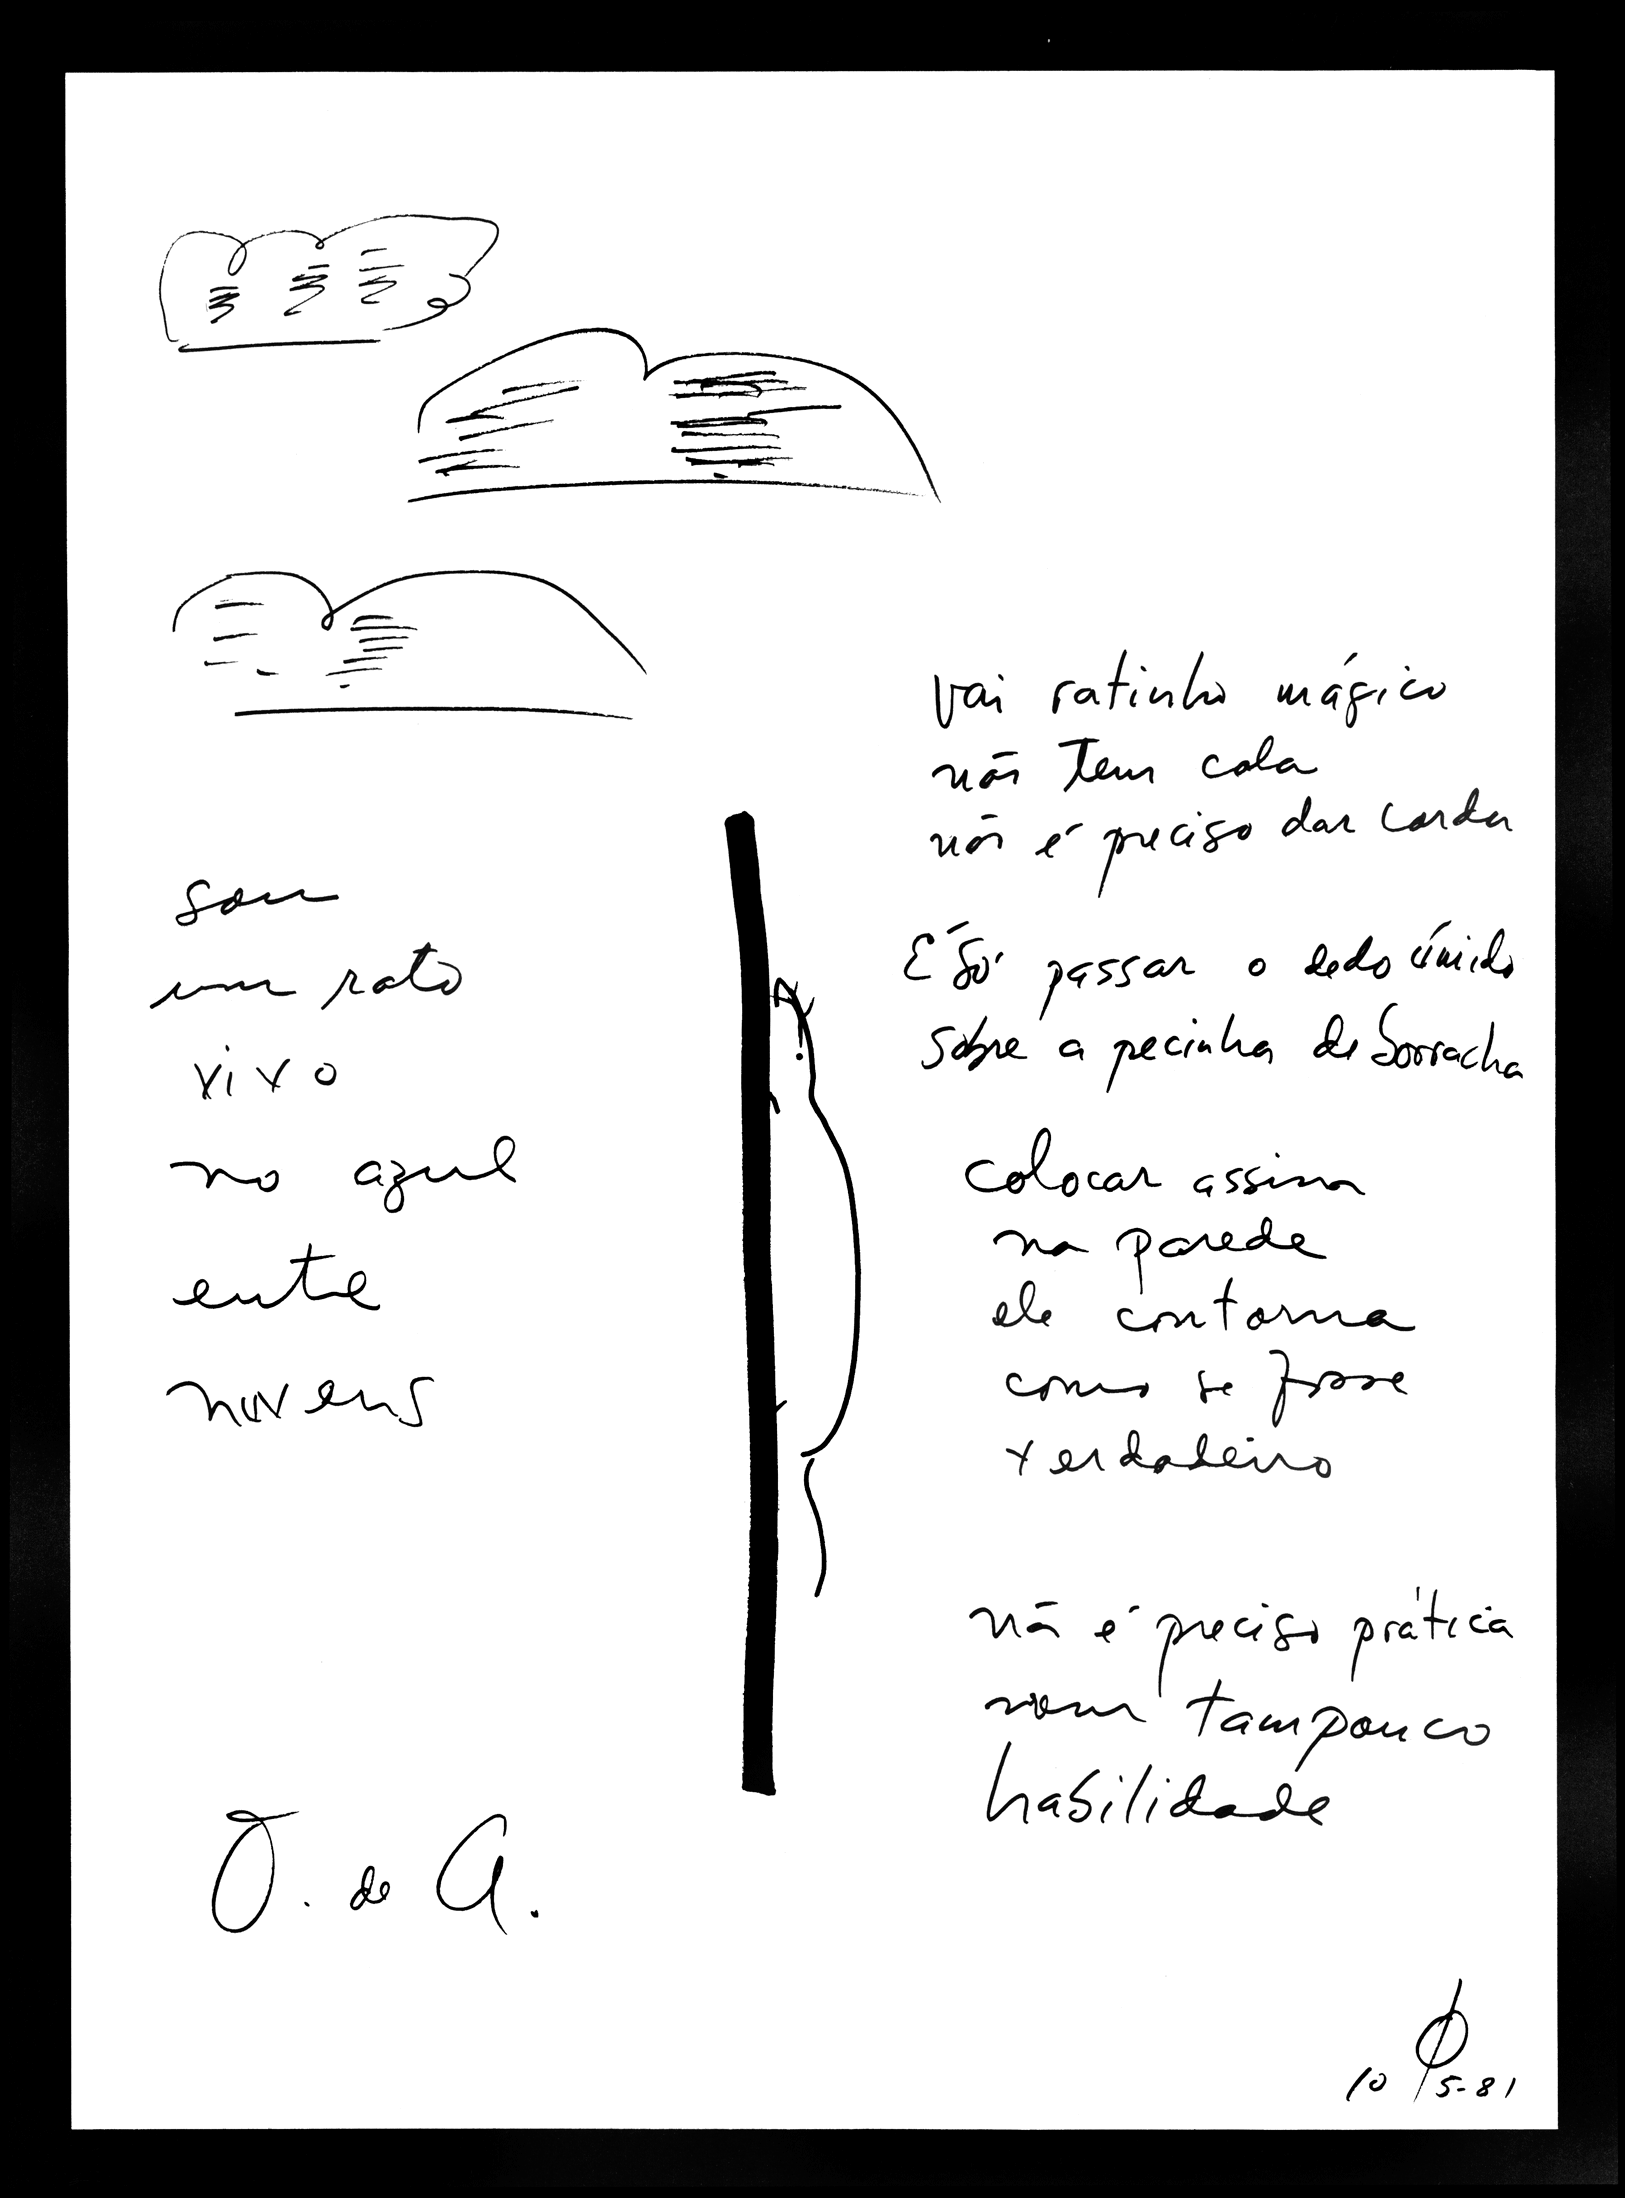 sou
um rato
vivo
no azul
entre
nuvens
O. de A.
vai ratinho mágico
não tem cola
não é preciso dar corda
É só passar o dedo úmido
sobre a pecinha de borracha
colocar assim
na parede
ele contorna
como se fosse
verdadeiro
não é preciso prática
nem tampouco
habilidade
10 5-81